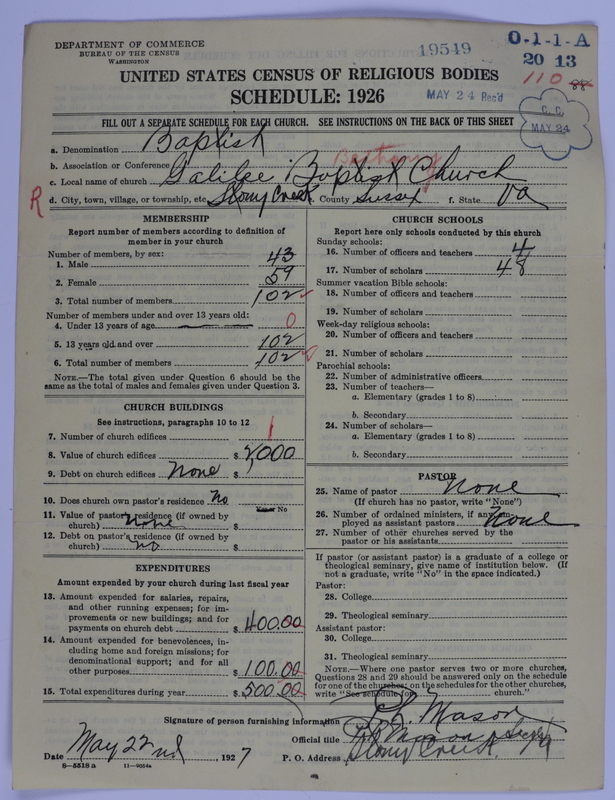 DEPARTMENT OF COMMERCE
BUREAU OF THE CENSUS
WASHINGTON
19549
0-1-1-A
20 13
110 88
UNITED STATES CENSUS OF RELIGIOUS BODIES
SCHEDULE: 1926
MAY 24 Rec'd
C. C.
MAY 24
FILL OUT A SEPARATE SCHEDULE FOR EACH CHURCH. SEE INSTRUCTIONS ON THE BACK OF THIS SHEET
a. Denomination Baptist
b. Association or Conference Bethany
c. Local name of church Galilee Baptist Church
R
d. City, town, village, or township, etc Stony Creek e. County Sussex f. State Va
MEMBERSHIP
Report number of members according to definition of member in your church
Number of members, by sex:
1. Male 43
2. Female 59
3. Total number of members 102
Number of members under and over 13 years old:
4. Under 13 years of age 0
5. 13 years old and over 102
6. Total number of members 102
NOTE.—The total given under Question 6 should be the same as the total of males and females given under Question 3.
CHURCH BUILDINGS
See instructions, paragraphs 10 to 12
7. Number of church edifices 1
8. Value of church edifices $ 2,000
9. Debt on church edifices None $
10. Does church own pastor's residence No
Yes or No
11. Value of pastor's residence (if owned by church) none $
12. Debt on pastor's residence (if owned by church) no $
EXPENDITURES
Amount expended by your church during last fiscal year
13. Amount expended for salaries, repairs, and other running expenses; for improvements or new buildings; and for payments on church debt $ 400.00
14. Amount expended for benevolences, including home and foreign missions; for denominational support; and for all other purposes $ 100.00
15. Total expenditures during year $ 500.00
CHURCH SCHOOLS
Report here only schools conducted by this church
Sunday schools:
16. Number of officers and teachers 4
17. Number of scholars 48
Summer vacation Bible schools:
18. Number of officers and teachers
19. Number of scholars
Week-day religious schools:
20. Number of officers and teachers
21. Number of scholars
Parochial schools:
22. Number of administrative officers
23. Number of teachers—
a. Elementary (grades 1 to 8)
b. Secondary
24. Number of scholars—
a. Elementary (grades 1 to 8)
b. Secondary
PASTOR
25. Name of pastor None
(If church has no pastor, write "None")
26. Number of ordained ministers, if any, employed as assistant pastors None
27. Number of other churches served by the pastor or his assistants
If pastor (or assistant pastor) is a graduate of a college or theological seminary, give name of institution below. (If not a graduate, write "No" in the space indicated.)
Pastor:
28. College
29. Theological seminary
Assistant pastor:
30. College
31. Theological seminary
NOTE.—Where one pastor serves two or more churches, Questions 28 and 29 should be answered only on the schedule for one of the churches; on the schedules for the other churches, write "See schedule for church."
Signature of person furnishing information Mason
Official title Mason
Date May 22nd, 1927 P. O. Address Stony Creek Va
8—5518 a 11—9554a